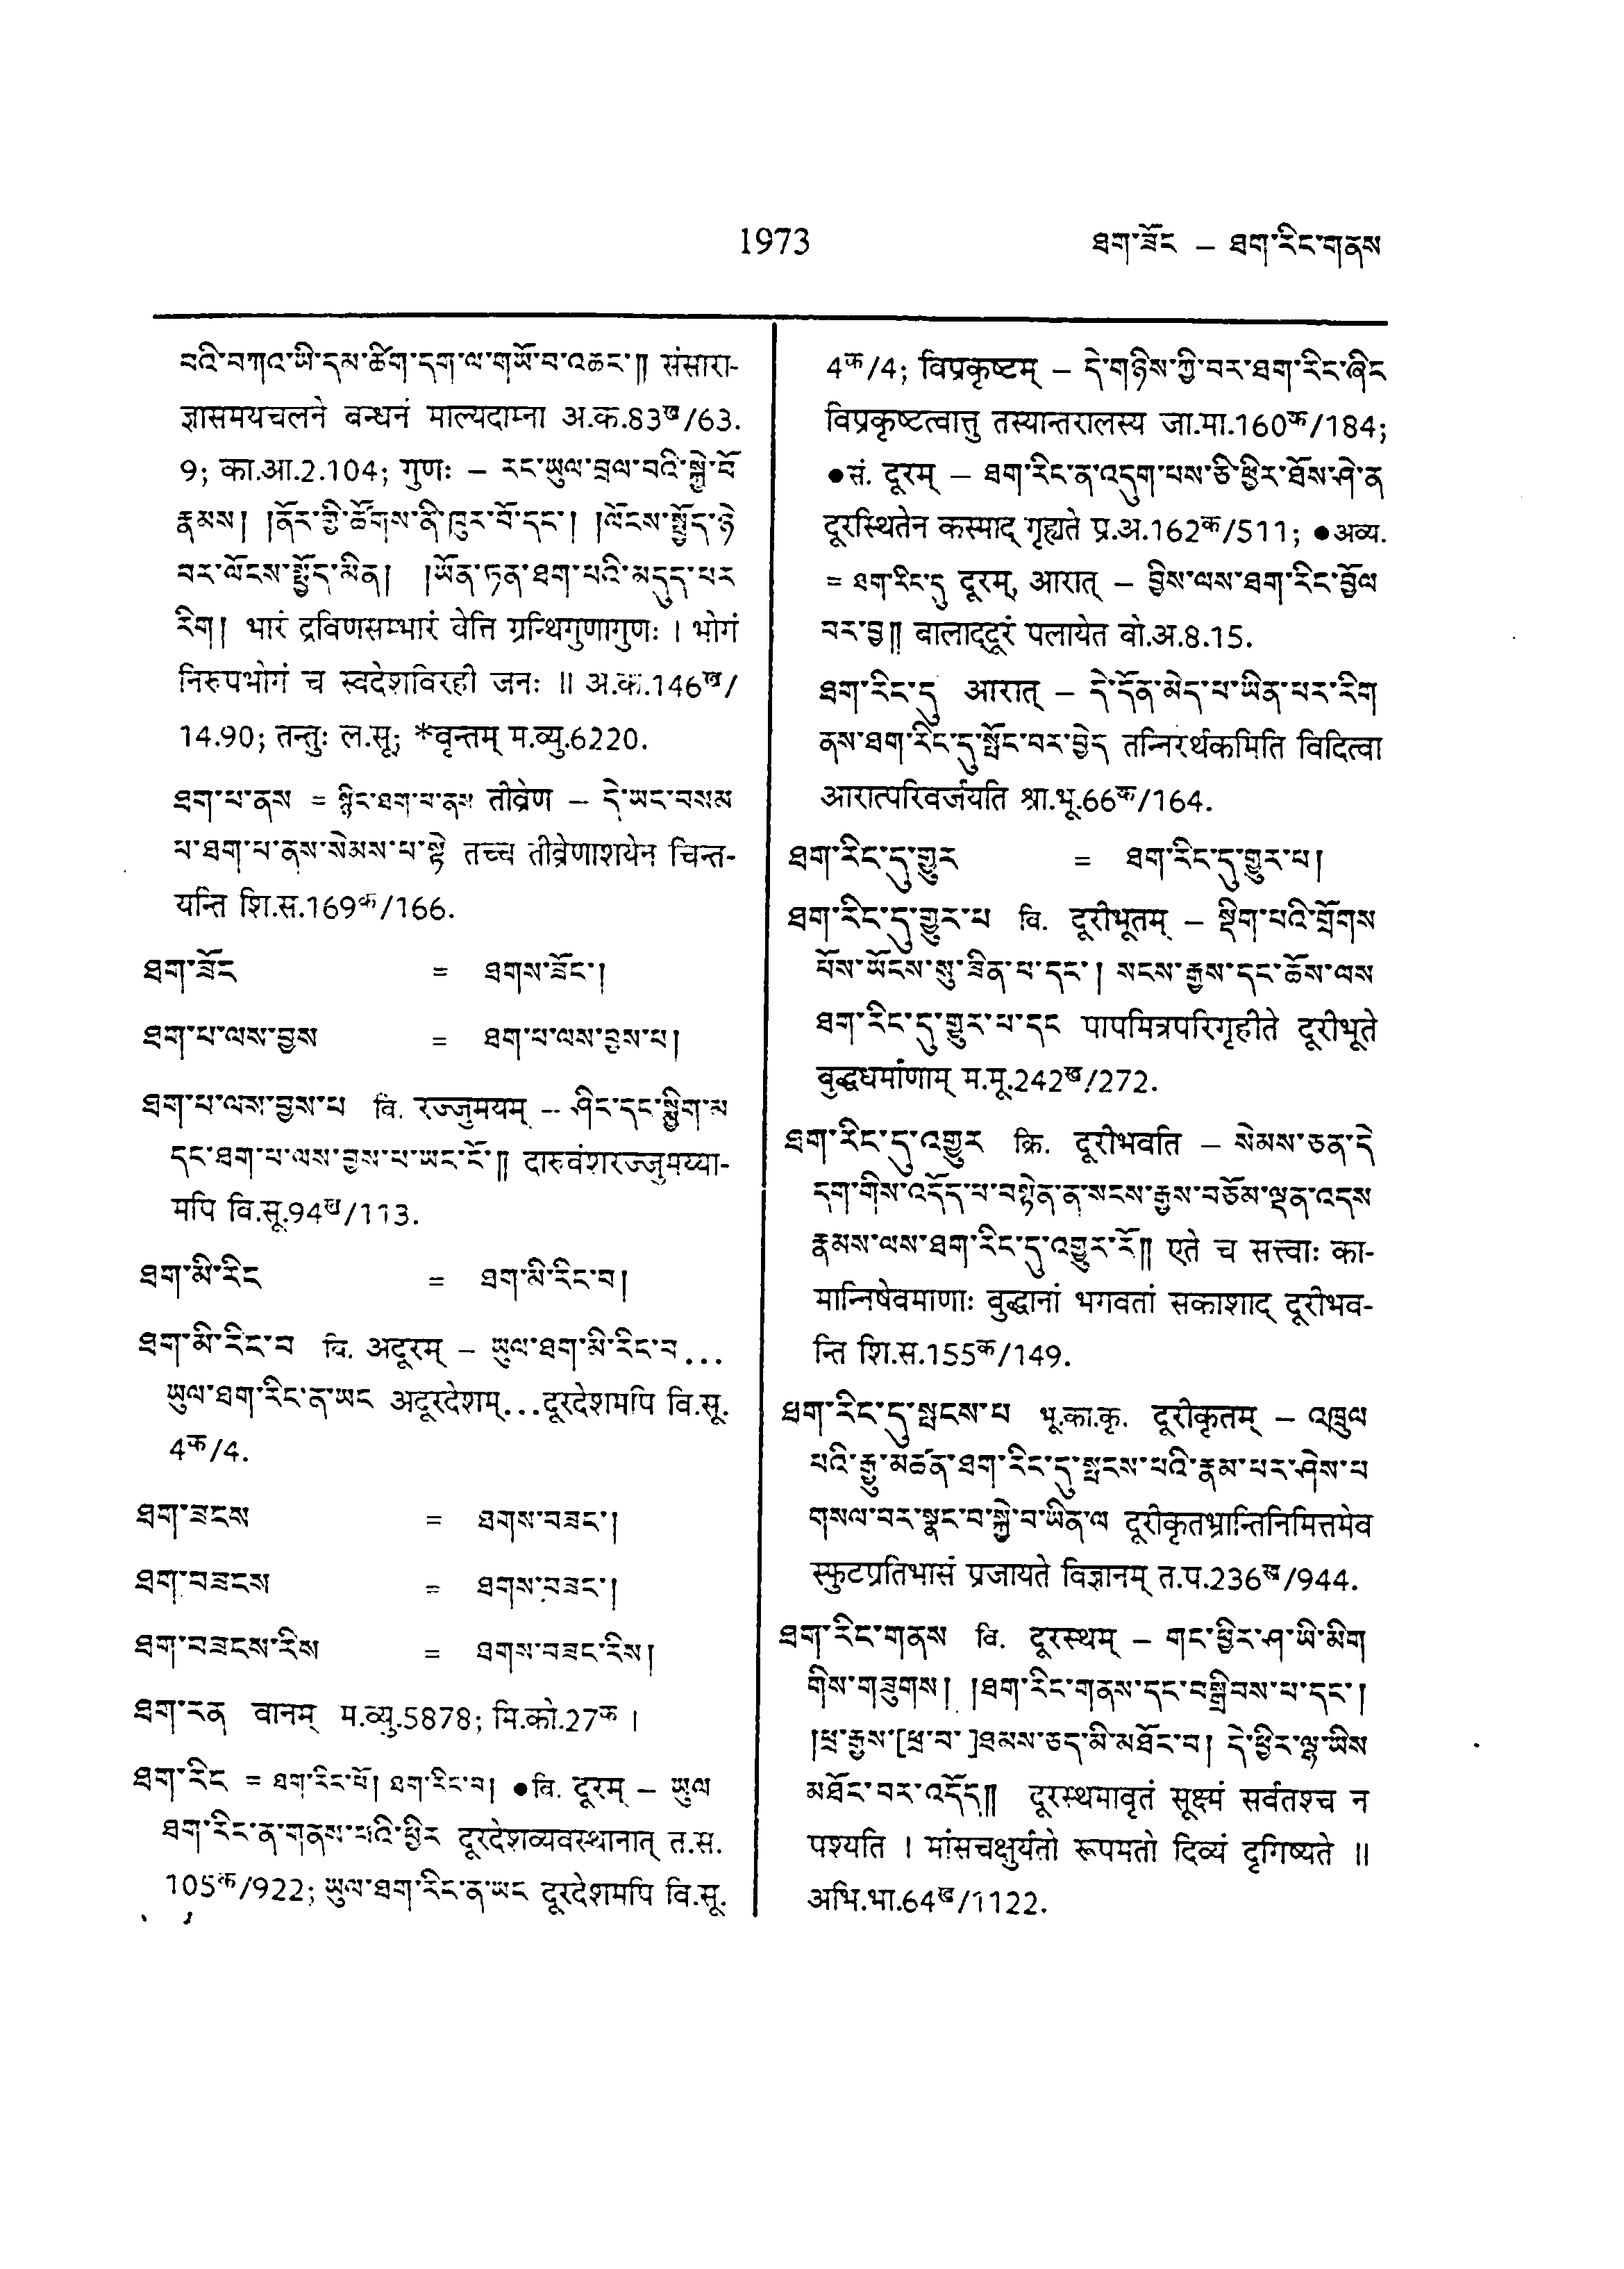 1973
ཐག་ཟོང – ཐག་རིང་གནས
པའི་བཀའ་ཡི་དམ་ཚིག་དག་ལ་གཡོ་བ་འཆང་༎ संसारा-
ज्ञासमयचलने बन्धनं माल्यदाम्ना अ.क.83ख/63.
9; का.आ.2.104; गुणः – རང་ཡུལ་བྲལ་བའི་སྐྱེ་བོ
རྣམས། །ནོར་གྱི་ཚོགས་ནི་ཁུར་བོ་དང་། །ལོངས་སྤྱོད་ཉེ
བར་ལོངས་སྤྱོད་མིན། །ཡོན་ཏན་ཐག་པའི་མདུད་པར
རིག། भारं द्रविणसम्भारं वेत्ति ग्रन्थिगुणागुणः । भोगं
निरुपभोगं च स्वदेशविरही जनः ॥ अ.क.146ख/
14.90; तन्तुः ल.सू; *वृन्तम् म.व्यु.6220.
ཐག་པ་ནས = སྙིང་ཐག་པ་ནས तीव्रेण – དེ་ཡང་བསམ
པ་ཐག་པ་ནས་སེམས་པ་སྟེ तच्च तीव्रेणाशयेन चिन्त-
यन्ति शि.स.169क/166.
ཐག་ཟོང = ཐགས་ཟོང་།
ཐག་པ་ལས་བྱས = ཐག་པ་ལས་བྱས་པ།
ཐག་པ་ལས་བྱས་པ वि. रज्जुमयम् – ཤིང་དང་སྨྱིག་མ
དང་ཐག་པ་ལས་བྱས་པ་ཡང་ངོ་༎ दारुवंशरज्जुमय्या-
मपि वि.सू.94ख/113.
ཐག་མི་རིང = ཐག་མི་རིང་བ།
ཐག་མི་རིང་བ वि. अदूरम् – ཡུལ་ཐག་མི་རིང་བ...
ཡུལ་ཐག་རིང་ན་ཡང अदूरदेशम्...दूरदेशमपि वि.सू.
4क/4.
ཐག་ཟངས = ཐགས་བཟང་།
ཐག་བཟངས = ཐགས་བཟང་།
ཐག་བཟངས་རིས = ཐགས་བཟང་རིས།
ཐག་རན वानम् म.व्यु.5878; मि.को.27क ।
ཐག་རིང = ཐག་རིང་པོ། ཐག་རིང་བ། ●वि. दूरम् – ཡུལ
ཐག་རིང་ན་གནས་པའི་ཕྱིར दूरदेशव्यवस्थानात् त.स.
105क/922; ཡུལ་ཐག་རིང་ན་ཡང दूरदेशमपि वि.सू.
4क/4; विप्रकृष्टम् – དེ་གཉིས་ཀྱི་བར་ཐག་རིང་ཞིང
विप्रकृष्टत्वात्तु तस्यान्तरालस्य जा.मा.160क/184;
●सं. दूरम् – ཐག་རིང་ན་འདུག་པས་ཅི་ཕྱིར་ཐོས་ཤེ་ན
दूरस्थितेन कस्माद् गृह्यते प्र.अ.162क/511; ●अव्य.
= ཐག་རིང་དུ दूरम्, आरात् – བྱིས་ལས་ཐག་རིང་བྱོལ
བར་བྱ༎ बालाद्दूरं पलायेत बो.अ.8.15.
ཐག་རིང་དུ आरात् – དེ་དོན་མེད་པ་ཡིན་པར་རིག
ནས་ཐག་རིང་དུ་སྤོང་བར་བྱེད तन्निरर्थकमिति विदित्वा
आरात्परिवर्जयति श्रा.भू.66क/164.
ཐག་རིང་དུ་གྱུར = ཐག་རིང་དུ་གྱུར་པ།
ཐག་རིང་དུ་གྱུར་པ वि. दूरीभूतम् – སྡིག་པའི་གྲོགས
པོས་ཡོངས་སུ་ཟིན་པ་དང་། སངས་རྒྱས་དང་ཆོས་ལས
ཐག་རིང་དུ་གྱུར་པ་དང पापमित्रपरिगृहीते दूरीभूते
बुद्धधर्माणाम् म.मू.242ख/272.
ཐག་རིང་དུ་འགྱུར क्रि. दूरीभवति – སེམས་ཅན་དེ
དག་གིས་འདོད་པ་བསྟེན་ན་སངས་རྒྱས་བཅོམ་ལྡན་འདས
རྣམས་ལས་ཐག་རིང་དུ་འགྱུར་རོ༎ एते च सत्त्वाः का-
मान्निषेवमाणाः बुद्धानां भगवतां सकाशाद् दूरीभव-
न्ति शि.स.155क/149.
ཐག་རིང་དུ་སྤངས་པ भू.का.कृ. दूरीकृतम् – འཁྲུལ
པའི་རྒྱུ་མཚན་ཐག་རིང་དུ་སྤངས་པའི་རྣམ་པར་ཤེས་པ
གསལ་བར་སྣང་བ་སྐྱེ་བ་ཡིན་ལ दूरीकृतभ्रान्तिनिमित्तमेव
स्फुटप्रतिभासं प्रजायते विज्ञानम् त.प.236ख/944.
ཐག་རིང་གནས वि. दूरस्थम् – གང་ཕྱིར་ཤ་ཡི་མིག
གིས་གཟུགས། །ཐག་རིང་གནས་དང་བསྒྲིབས་པ་དང་།
།ཕྲ་རྒྱས་[ཕྲ་བ་]ཐམས་ཅད་མི་མཐོང་བ། དེ་ཕྱིར་ལྷ་ཡིས
མཐོང་བར་འདོད༎ दूरस्थमावृतं सूक्ष्मं सर्वतश्च न
पश्यति । मांसचक्षुर्यतो रूपमतो दिव्यं दृगिष्यते ॥
अभि.भा.64ख/1122.